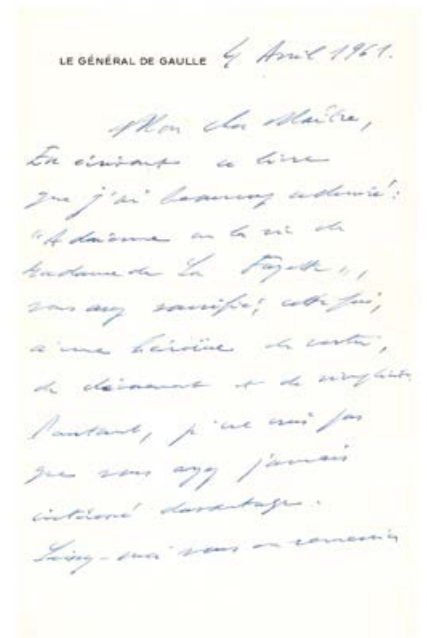 LE GÉNÉRAL DE GAULLE 4 Avril 1961.
Mon cher Maître,
En écrivant ce livre
que j'ai beaucoup admiré :
"Adrienne ou la vie de
Madame de La Fayette",
vous avez sacrifié, cette fois,
à une héroïne de vertu,
de dévouement et de simplicité.
Pourtant, je ne crois pas
que vous ayez jamais
intéressé davantage.
Laissez-moi vous en remercier